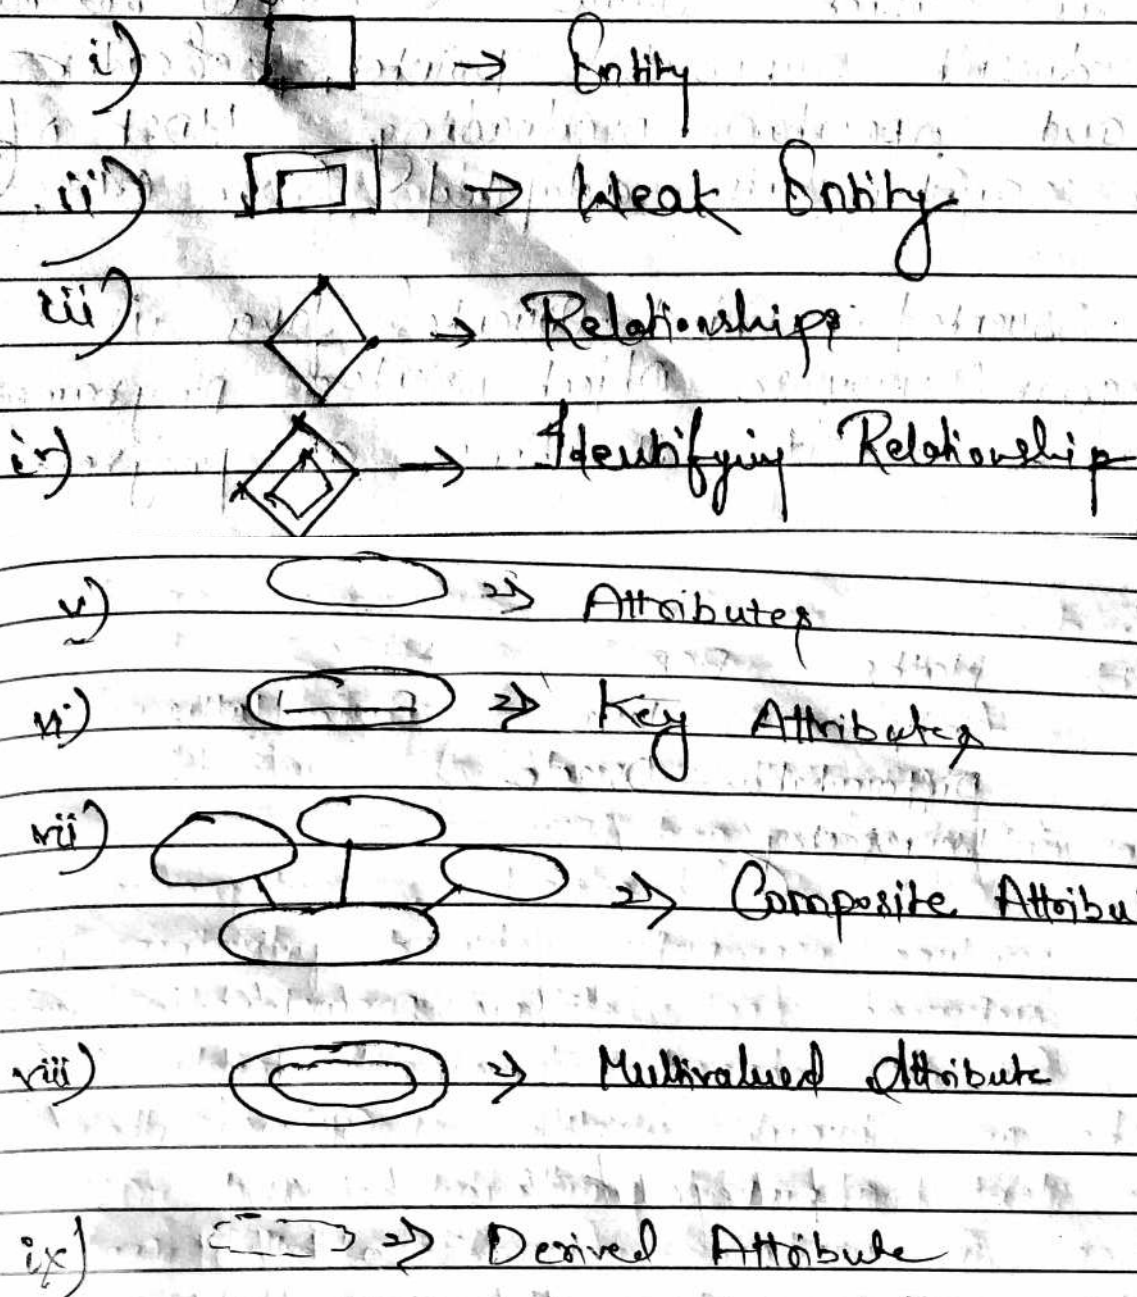 i) → Entity
ii) → Weak Entity
iii) → Relationships
iv) → Identifying Relationship
v) ⇒ Attributes
vi) ⇒ Key Attributes
vii) ⇒ Composite Attribu
viii) ⇒ Multivalued Attribute
ix) ⇒ Derived Attribute